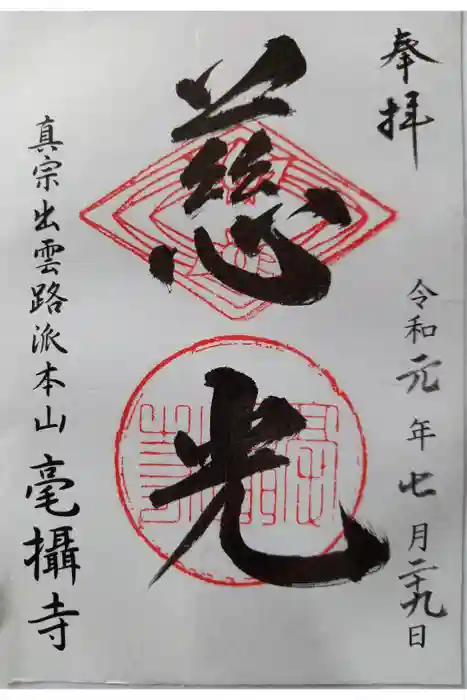 奉拝
令和元年七月二十九日
慈光
真宗出雲路派本山毫攝寺